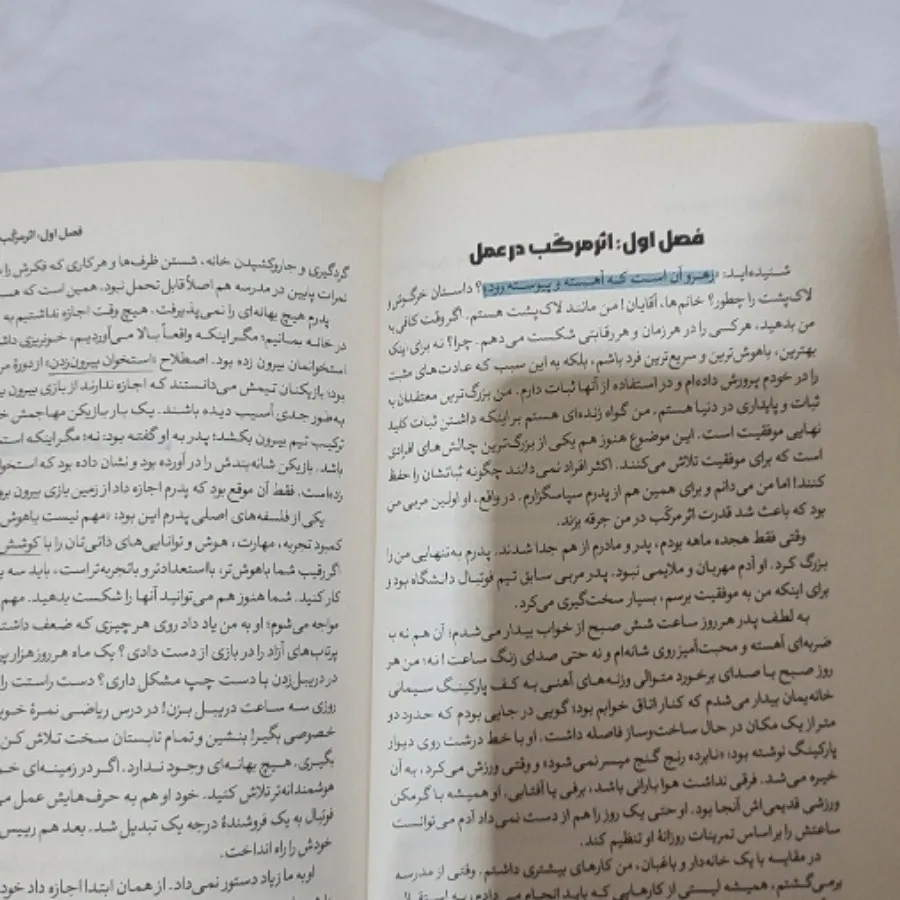 فصل اول: اثر مرکّب در عمل
شنیده‌اید: «رهرو آن است که آهسته و پیوسته رود»؟ داستان خرگوش و
لاک‌پشت را چطور؟ خانم‌ها، آقایان! من مانند لاک‌پشت هستم. اگر وقت کافی به
من بدهید، هرکسی را در هر زمان و هر رقابتی شکست می‌دهم. چرا؟ نه برای اینکه
بهترین، باهوش‌ترین و سریع‌ترین فرد باشم، بلکه به این سبب که عادت‌های مثبت
را در خودم پرورش داده‌ام و در استفاده از آنها ثبات دارم. من بزرگ‌ترین معتقدان به
ثبات و پایداری در دنیا هستم. من گواه زنده‌ای هستم بر اینکه داشتن ثبات کلید
نهایی موفقیت است. این موضوع هنوز هم یکی از بزرگ‌ترین چالش‌های افرادی
است که برای موفقیت تلاش می‌کنند. اکثر افراد نمی‌دانند چگونه ثباتشان را حفظ
کنند! اما من می‌دانم و برای همین هم از پدرم سپاسگزارم. در واقع، او اولین مربی من
بود که باعث شد قدرت اثر مرکّب در من جرقه بزند.
وقتی فقط هجده ماهه بودم، پدر و مادرم از هم جدا شدند. پدرم به‌تنهایی من را
بزرگ کرد. او آدم مهربان و ملایمی نبود. پدر مربی سابق تیم فوتبال دانشگاه بود و
برای اینکه من به موفقیت برسم، بسیار سخت‌گیری می‌کرد.
به لطف پدر هر روز ساعت شش صبح از خواب بیدار می‌شدم؛ آن هم نه با
ضربه‌ای آهسته و محبت‌آمیز روی شانه‌ام و نه حتی صدای زنگ ساعت! نه؛ من هر
روز صبح با صدای برخورد متوالی وزنه‌های آهنی به کف پارکینگ سیمانی
خانه‌یمان بیدار می‌شدم که کنار اتاق خوابم بود؛ گویی در جایی بودم که حدود دو
متر از یک مکان در حال ساخت‌وساز فاصله داشت. او با خط درشت روی دیوار
پارکینگ نوشته بود: «نابرده رنج گنج میسر نمی‌شود» و وقتی ورزش می‌کرد، به آن
خیره می‌شد. فرقی نداشت هوا بارانی باشد، برفی یا آفتابی. او همیشه با گرمکن
ورزشی قدیمی‌اش آنجا بود. او حتی یک روز را هم از دست نمی‌داد آدم می‌توانست
ساعتش را بر اساس تمرینات روزانهٔ او تنظیم کند.
در مقایسه با یک خانه‌دار و باغبان، من کارهای بیشتری داشتم. وقتی از مدرسه
برمی‌گشتم، همیشه لیستی از کارهایی که باید انجام می‌دادم، به استقبال
فصل اول: اثر مرکّب
گردگیری و جاروکشیدن خانه، شستن ظرف‌ها و هر کاری که فکرش را
نمرات پایین در مدرسه هم اصلاً قابل تحمل نبود. همین است که هس
پدرم هیچ بهانه‌ای را نمی‌پذیرفت. هیچ وقت اجازه نداشتیم به
در خانه بمانیم؛ مگر اینکه واقعاً بالا می‌آوردیم، خونریزی داش
استخوانمان بیرون زده بود. اصطلاح «استخوان بیرون‌زدن» از دورهٔ مر
بود؛ بازیکنان تیمش می‌دانستند که اجازه ندارند از بازی بیرون
به‌طور جدی آسیب دیده باشند. یک بار بازیکن مهاجمش خ
ترکیب تیم بیرون بکشد؛ پدر به او گفته بود: نه؛ مگر اینکه است
باشد. بازیکن شانه‌بندش را در آورده بود و نشان داده بود که استخوا
زده‌است. فقط آن موقع بود که پدرم اجازه داد از زمین بازی بیرون برو
یکی از فلسفه‌های اصلی پدرم این بود: «مهم نیست باهوش
کمبود تجربه، مهارت، هوش و توانایی‌های ذاتی‌تان را با کوشش
اگر رقیب شما باهوش‌تر، بااستعدادتر و باتجربه‌تر است، باید سه
کار کنید. شما هنوز هم می‌توانید آنها را شکست بدهید. مهم
مواجه می‌شوم؛ او به من یاد داد روی هر چیزی که ضعف داشت
پرتاب‌های آزاد را در بازی از دست دادی؟ یک ماه هر روز هزار پر
در دریبل‌زدن با دست چپ مشکل داری؟ دست راستت را
روزی سه ساعت دریبل بزن! در درس ریاضی نمرهٔ خوب
خصوصی بگیر! بنشین و تمام تابستان سخت تلاش کن
بگیری. هیچ بهانه‌ای وجود ندارد. اگر در زمینه‌ای خ
هوشمندانه‌تر تلاش کنید. خود او هم به حرف‌هایش عمل می
فوتبال به یک فروشندهٔ درجه یک تبدیل شد. بعد هم رییس
خودش را راه انداخت.
او به ما زیاد دستور نمی‌داد. از همان ابتدا اجازه داد خود